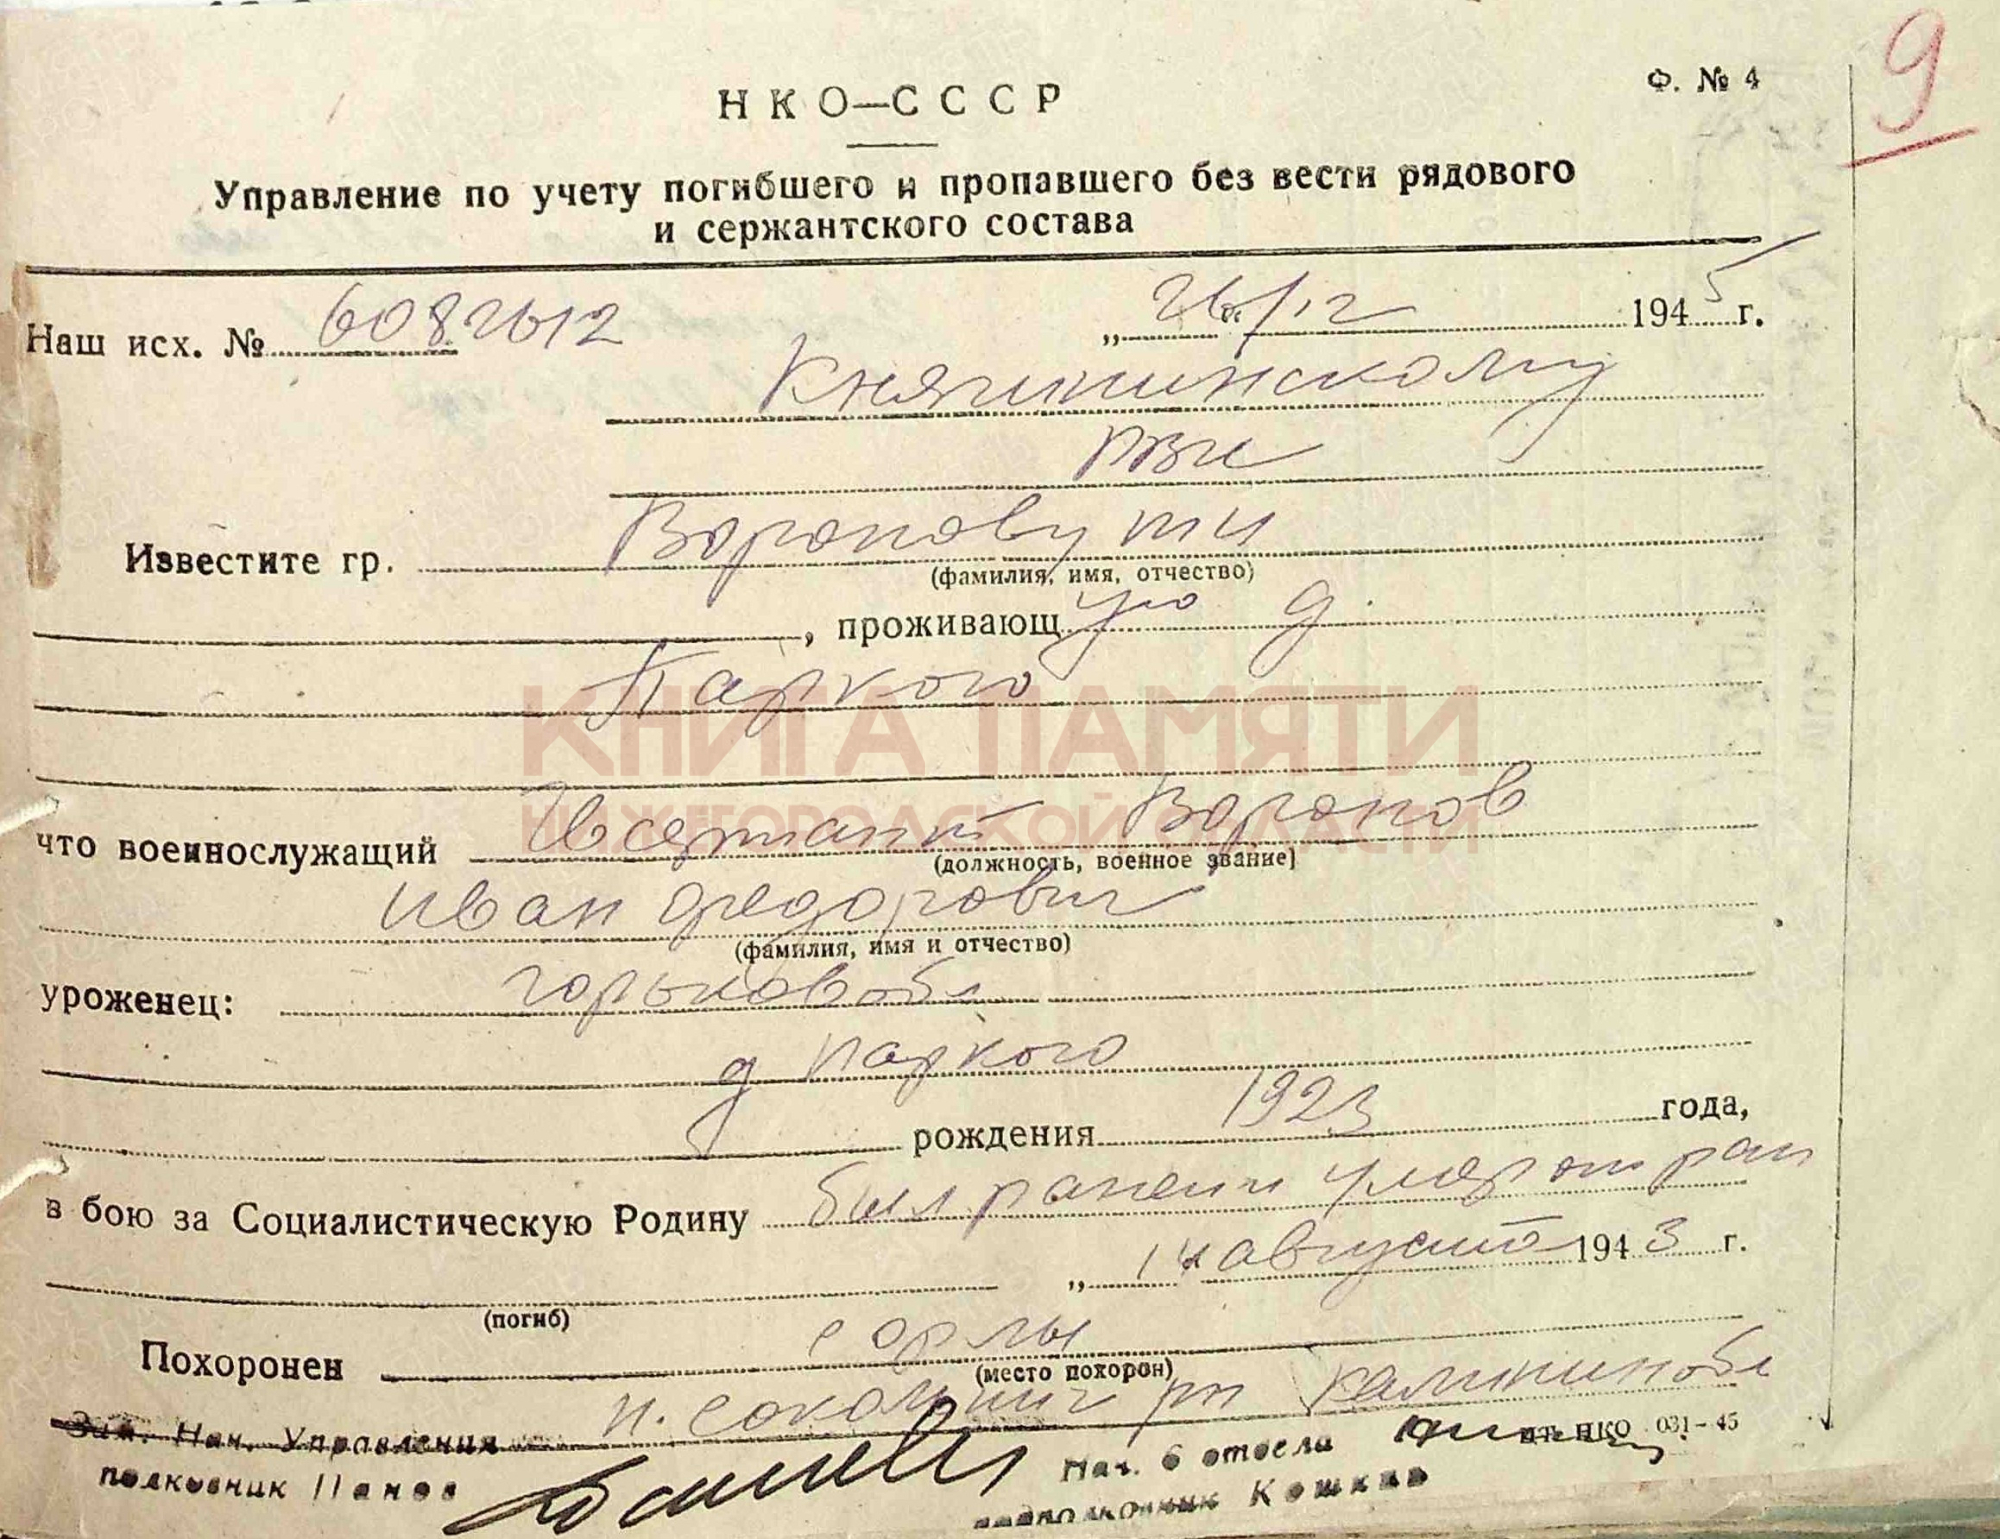 9
Ф. № 4
НКО—СССР
Управление по учету погибшего и пропавшего без вести рядового
и сержантского состава
Наш исх. № 6082612 „ 26 “ 12 1945 г.
Княгининскому
РВК
Известите гр. Воронову
(фамилия, имя, отчество)
, проживающ ую д.
Паркого
КНИГА ПАМЯТИ
НИЖЕГОРОДСКОЙ ОБЛАСТИ
что военнослужащий сержант Воронов
(должность, военное звание)
Иван Федорович
(фамилия, имя и отчество)
уроженец: Горьков обл
д Паркого
рождения 1923 года,
в бою за Социалистическую Родину был ранен и умер от ран
„ 14 “ августа 1943 г.
(погиб)
Похоронен
(место похорон)
рн Калинин обл
Зам. Нач. Управления
полковник Панов
тип. НКО 031—45
Нач. 6 отдела
подполковник Кошкин